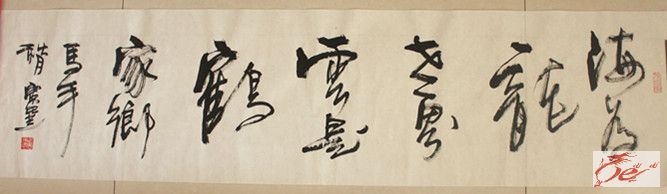 海為
龍
世界
雲是
鶴
家鄉
馬年